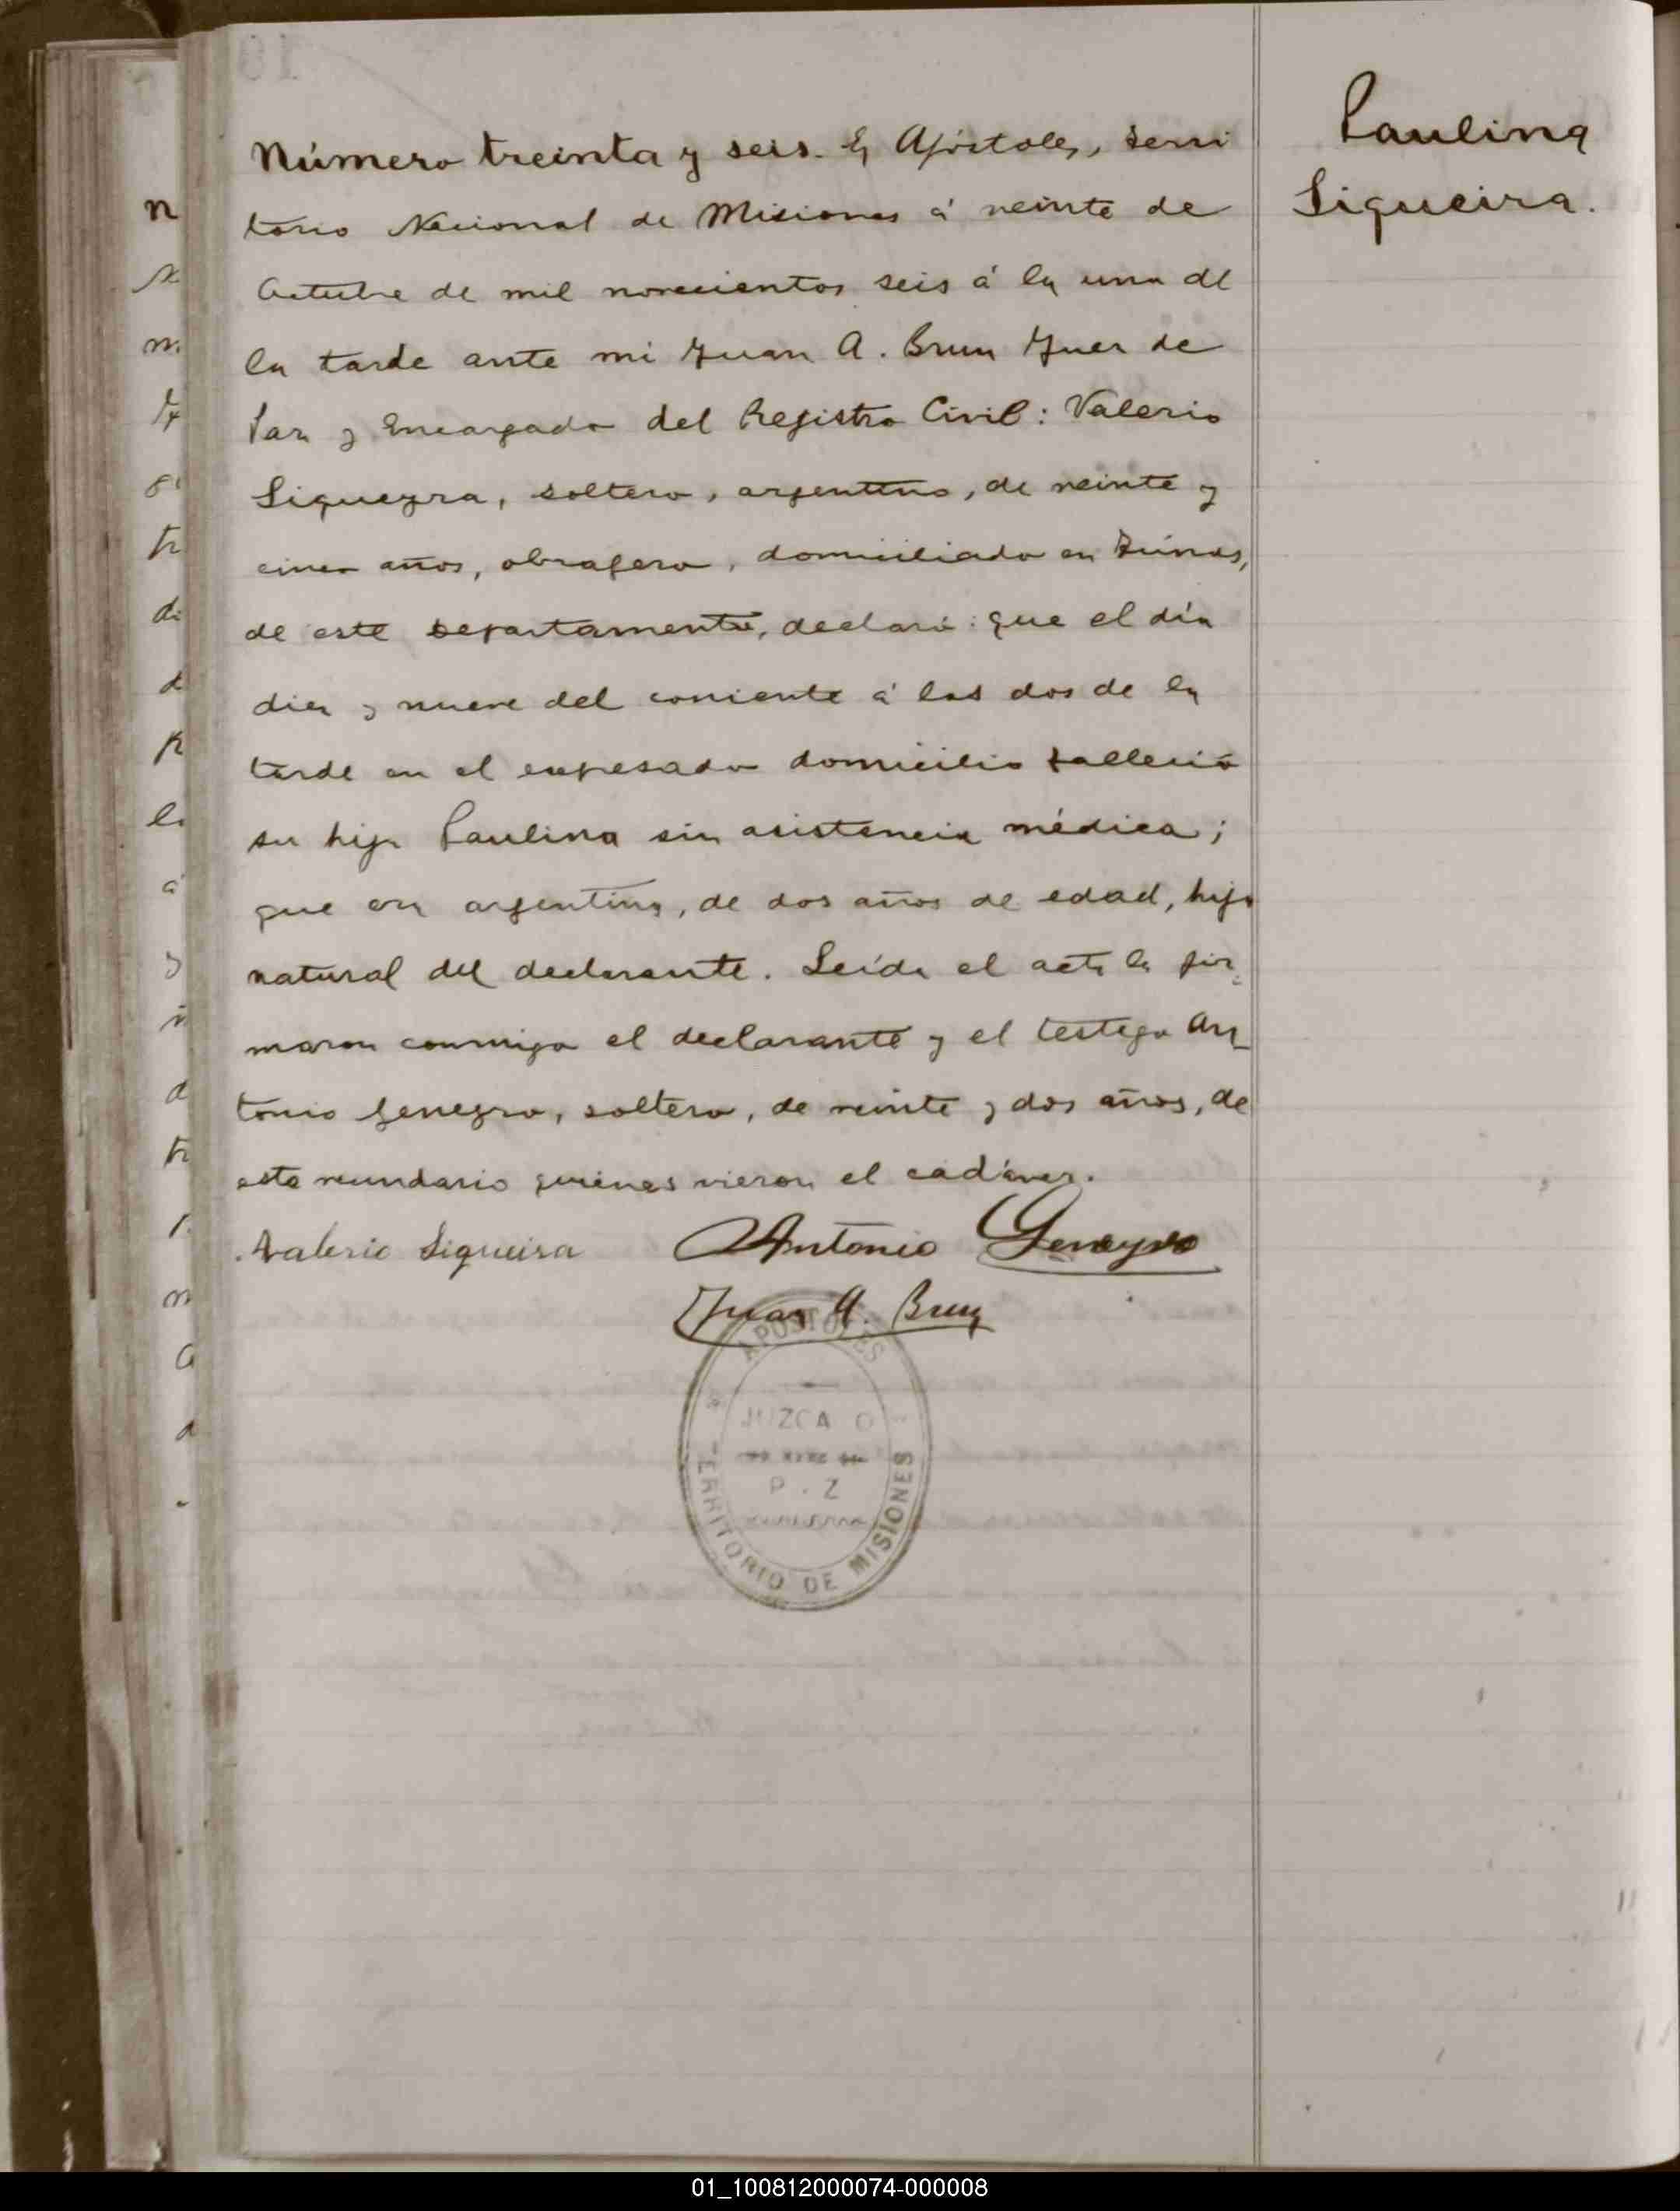 Paulina
Siqueira.
Número treinta y seis. En Apóstoles, Terri
torio Nacional de Misiones á veinte de
Octubre de mil novecientos seis á la una de
la tarde ante mi Juan A. Brun Juez de
Paz y Encargado del Registro Civil: Valerio
Siqueyra, soltero, argentino, de veinte y
cinco años, obragero, domiciliado en
de este Departamento, declaró: que el día
diez y nueve del corriente á las dos de la
tarde en el expresado domicilio falleció
su hija Paulina sin asistencia médica;
que era argentina, de dos años de edad, hija
natural del declarante. Leída el acta la fir_
maron conmigo el declarante y el testigo An_
tonio Geneyro, soltero, de veinte y dos años, de
este vecindario quienes vieron el cadáver.
Valerio Siqueira Antonio Geneyro
Juan A. Brun
APOSTOLES
JUZCA O
P . Z
TERRITORIO DE MISIONES
01_100812000074-000008